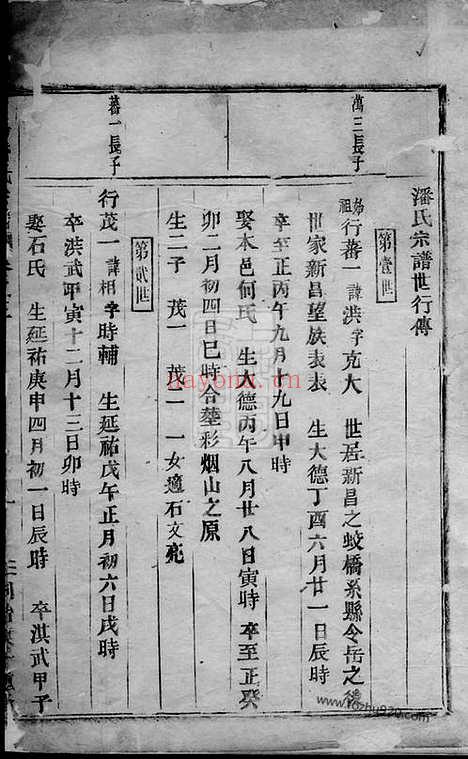 潘氏宗譜世行傳
萬三長子
第壹世
始祖行蕃一諱洪字克大 世居新昌之蛟橋系縣令岳之後
世家新昌望族表表 生大德丁酉六月廿一日辰時
卒至正丙午九月十九日申時
娶本邑何氏 生大德丙午八月廿八日寅時 卒至正癸
卯二月初四日巳時合塟彩烟山之原
生二子 茂一 茂二 一女適石文
蕃一長子
第貳世
行茂一諱相字時輔 生延祐戊午正月初六日戌時
卒洪武甲寅十二月十三日卯時
娶石氏 生延祐庚申四月初一日辰時 卒淇武甲子
hayonx.cn
www.fozhu920.com